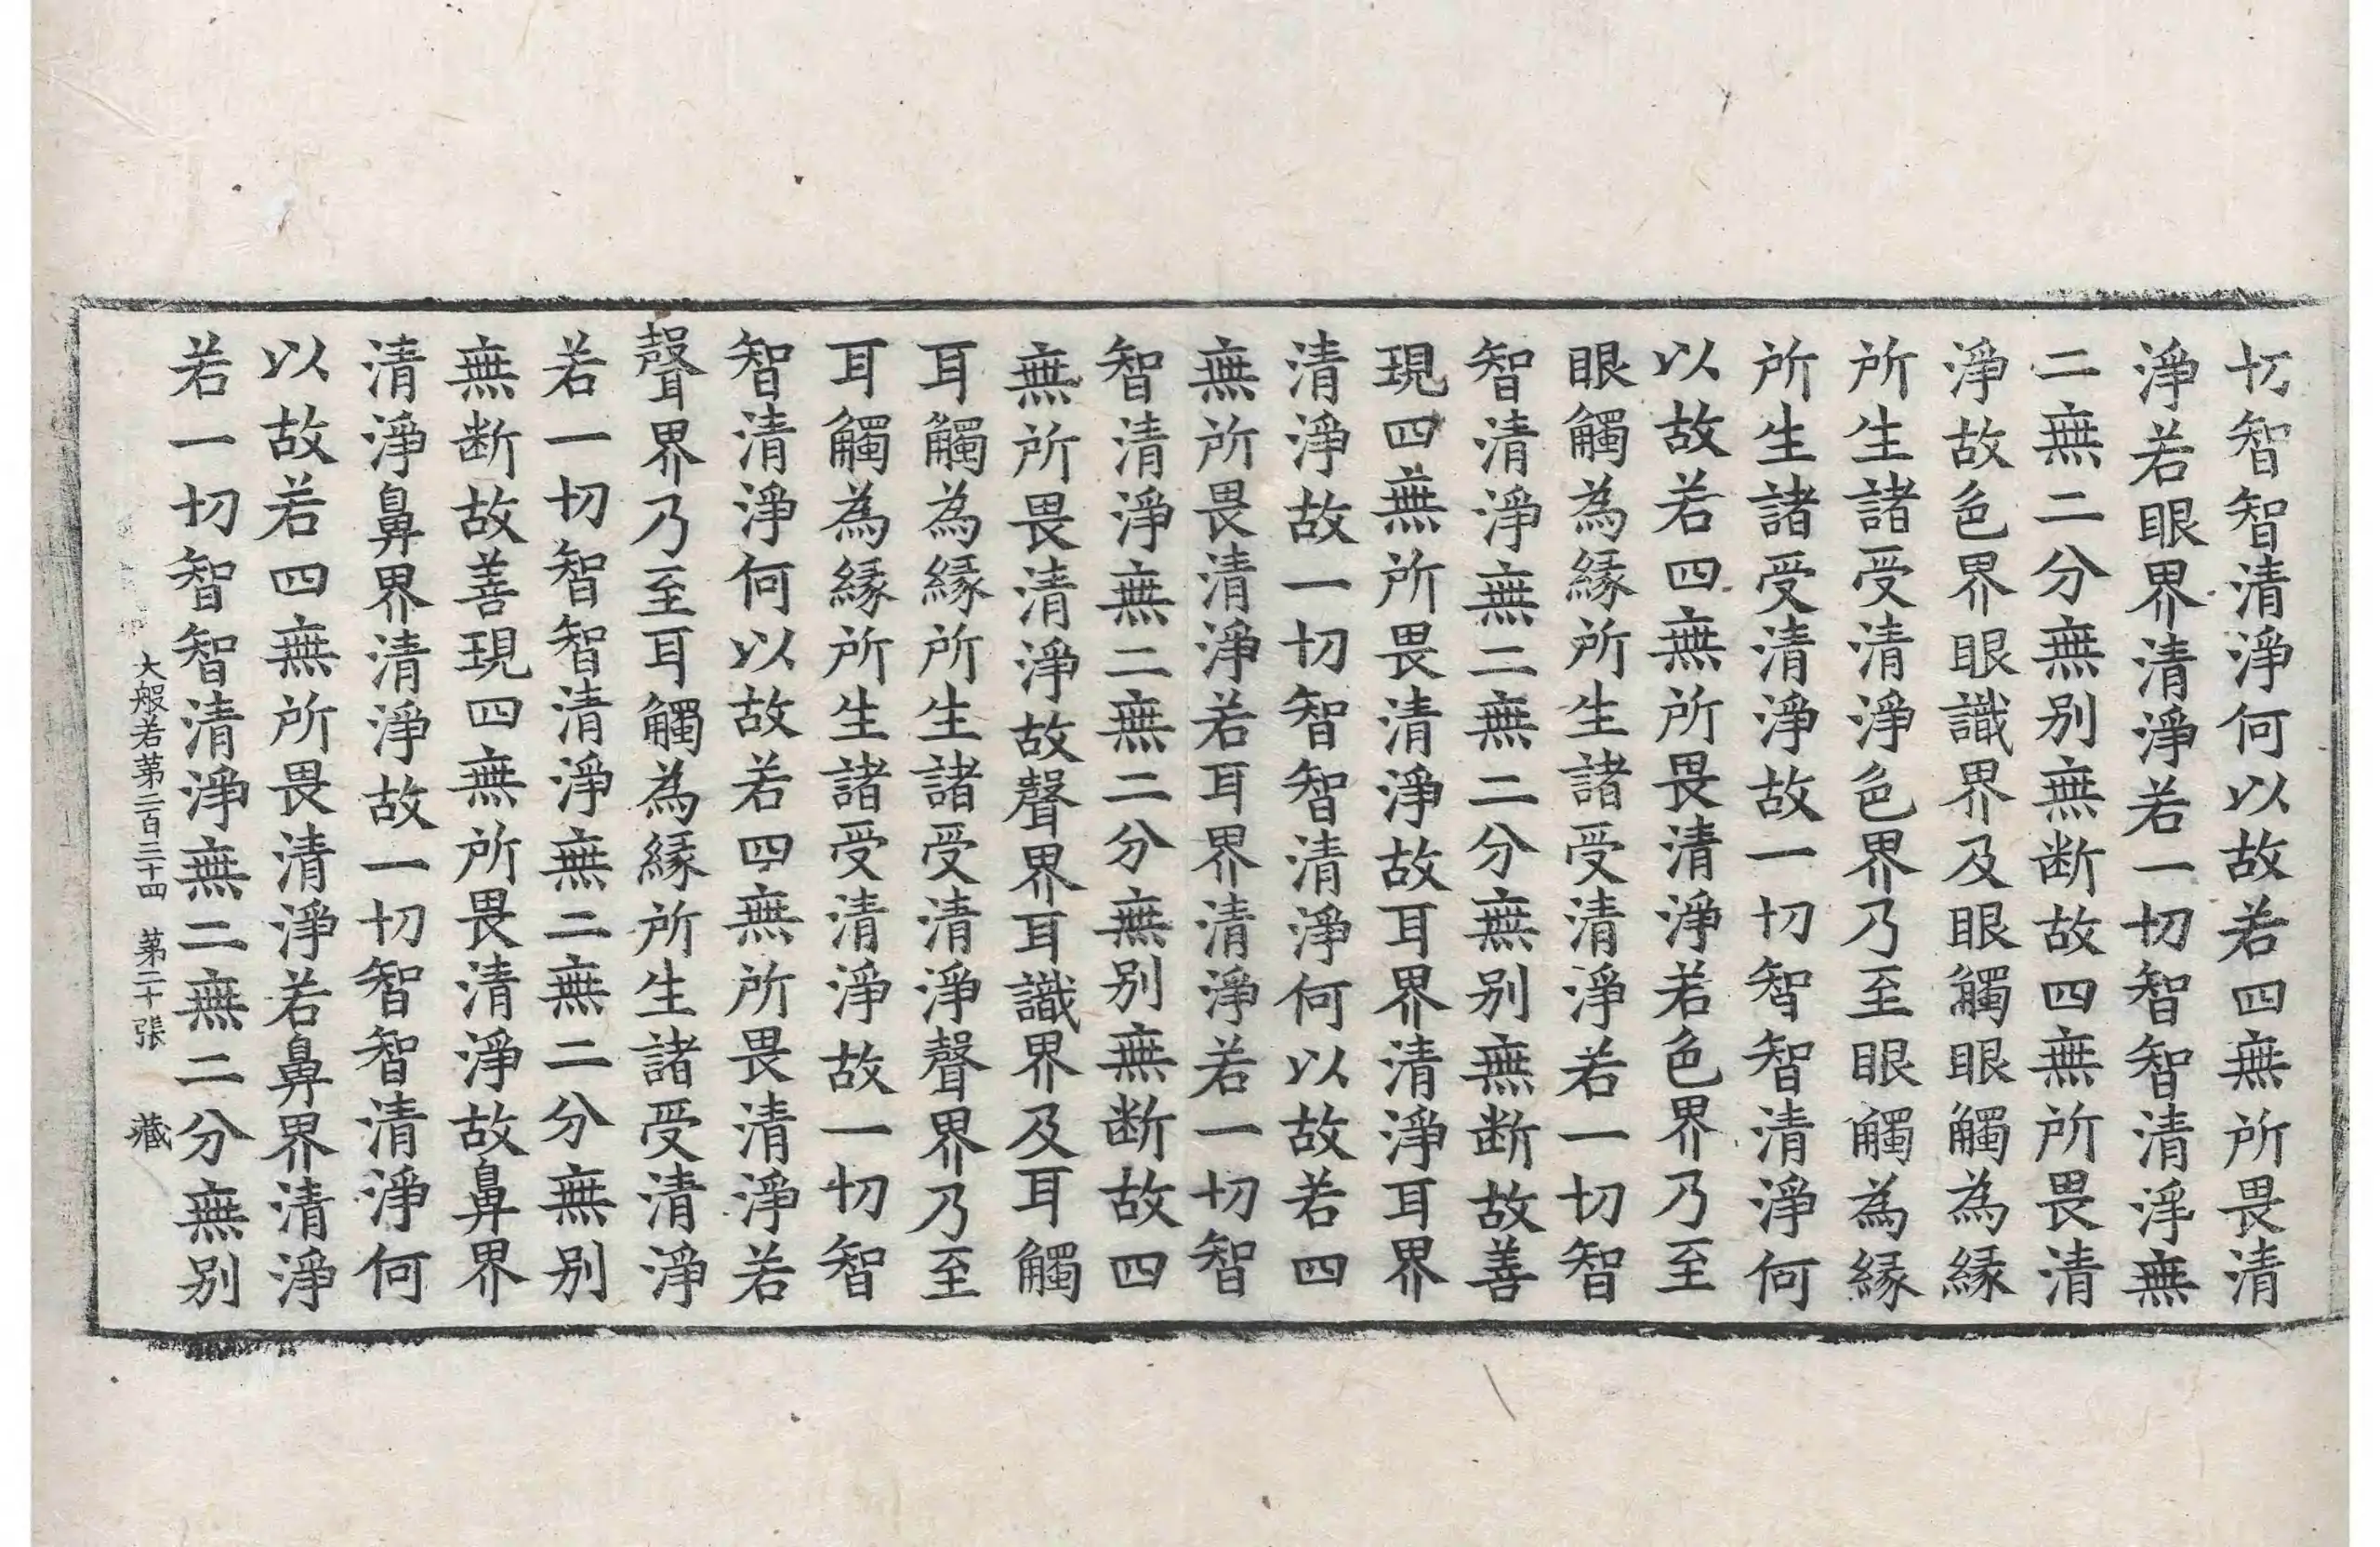 切智智清淨何以故若四無所畏清
淨若眼界清淨若一切智智清淨無
二無二分無别無断故四無所畏清
淨故色界眼識界及眼觸眼觸為緣
所生諸受清淨色界乃至眼觸為緣
所生諸受清淨故一切智智清淨何
以故若四無所畏清淨若色界乃至
眼觸為緣所生諸受清淨若一切智
智清淨無二無二分無别無断故善
現四無所畏清淨故耳界清淨耳界
清淨故一切智智清淨何以故若四
無所畏清淨若耳界清淨若一切智
智清淨無二無二分無别無断故四
無所畏清淨故聲界耳識界及耳觸
耳觸為緣所生諸受清淨聲界乃至
耳觸為緣所生諸受清淨故一切智
智清淨何以故若四無所畏清淨若
聲界乃至耳觸為緣所生諸受清淨
若一切智智清淨無二無二分無别
無断故善現四無所畏清淨故鼻界
清淨鼻界清淨故一切智智清淨何
以故若四無所畏清淨若鼻界清淨
若一切智智清淨無二無二分無别
大般若第二百三十四 第二十張 藏